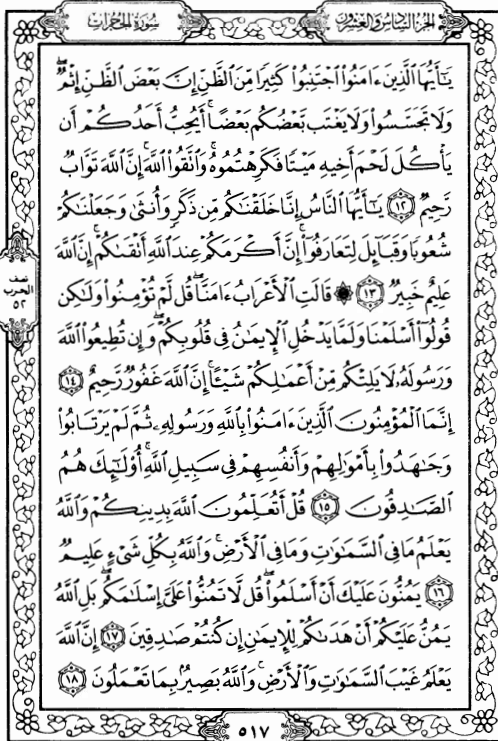 سُورَةُ الحُجُرَاتِ
الجُزْءُ السَّادِسُ وَالعِشْرُونَ
يَـٰٓأَيُّهَا ٱلَّذِينَ ءَامَنُوا۟ ٱجْتَنِبُوا۟ كَثِيرًا مِّنَ ٱلظَّنِّ إِنَّ بَعْضَ ٱلظَّنِّ إِثْمٌ ۖ
وَلَا تَجَسَّسُوا۟ وَلَا يَغْتَب بَّعْضُكُم بَعْضًا ۚ أَيُحِبُّ أَحَدُكُمْ أَن
يَأْكُلَ لَحْمَ أَخِيهِ مَيْتًا فَكَرِهْتُمُوهُ ۚ وَٱتَّقُوا۟ ٱللَّهَ ۚ إِنَّ ٱللَّهَ تَوَّابٌ
رَّحِيمٌ ١٢ يَـٰٓأَيُّهَا ٱلنَّاسُ إِنَّا خَلَقْنَـٰكُم مِّن ذَكَرٍ وَأُنثَىٰ وَجَعَلْنَـٰكُمْ
شُعُوبًا وَقَبَآئِلَ لِتَعَارَفُوٓا۟ ۚ إِنَّ أَكْرَمَكُمْ عِندَ ٱللَّهِ أَتْقَىٰكُمْ ۚ إِنَّ ٱللَّهَ
عَلِيمٌ خَبِيرٌ ١٣ ۞ قَالَتِ ٱلْأَعْرَابُ ءَامَنَّا ۖ قُل لَّمْ تُؤْمِنُوا۟ وَلَـٰكِن
قُولُوٓا۟ أَسْلَمْنَا وَلَمَّا يَدْخُلِ ٱلْإِيمَـٰنُ فِى قُلُوبِكُمْ ۖ وَإِن تُطِيعُوا۟ ٱللَّهَ
وَرَسُولَهُۥ لَا يَلِتْكُم مِّنْ أَعْمَـٰلِكُمْ شَيْـًٔا ۚ إِنَّ ٱللَّهَ غَفُورٌ رَّحِيمٌ ١٤
إِنَّمَا ٱلْمُؤْمِنُونَ ٱلَّذِينَ ءَامَنُوا۟ بِٱللَّهِ وَرَسُولِهِۦ ثُمَّ لَمْ يَرْتَابُوا۟
وَجَـٰهَدُوا۟ بِأَمْوَٰلِهِمْ وَأَنفُسِهِمْ فِى سَبِيلِ ٱللَّهِ ۚ أُو۟لَـٰٓئِكَ هُمُ
ٱلصَّـٰدِقُونَ ١٥ قُلْ أَتُعَلِّمُونَ ٱللَّهَ بِدِينِكُمْ وَٱللَّهُ
يَعْلَمُ مَا فِى ٱلسَّمَـٰوَٰتِ وَمَا فِى ٱلْأَرْضِ ۚ وَٱللَّهُ بِكُلِّ شَىْءٍ عَلِيمٌ
١٦ يَمُنُّونَ عَلَيْكَ أَنْ أَسْلَمُوا۟ ۖ قُل لَّا تَمُنُّوا۟ عَلَىَّ إِسْلَـٰمَكُم ۖ بَلِ ٱللَّهُ
يَمُنُّ عَلَيْكُمْ أَنْ هَدَىٰكُمْ لِلْإِيمَـٰنِ إِن كُنتُمْ صَـٰدِقِينَ ١٧ إِنَّ ٱللَّهَ
يَعْلَمُ غَيْبَ ٱلسَّمَـٰوَٰتِ وَٱلْأَرْضِ ۚ وَٱللَّهُ بَصِيرٌۢ بِمَا تَعْمَلُونَ ١٨
نصف
الحزب
٥٢
٥١٧